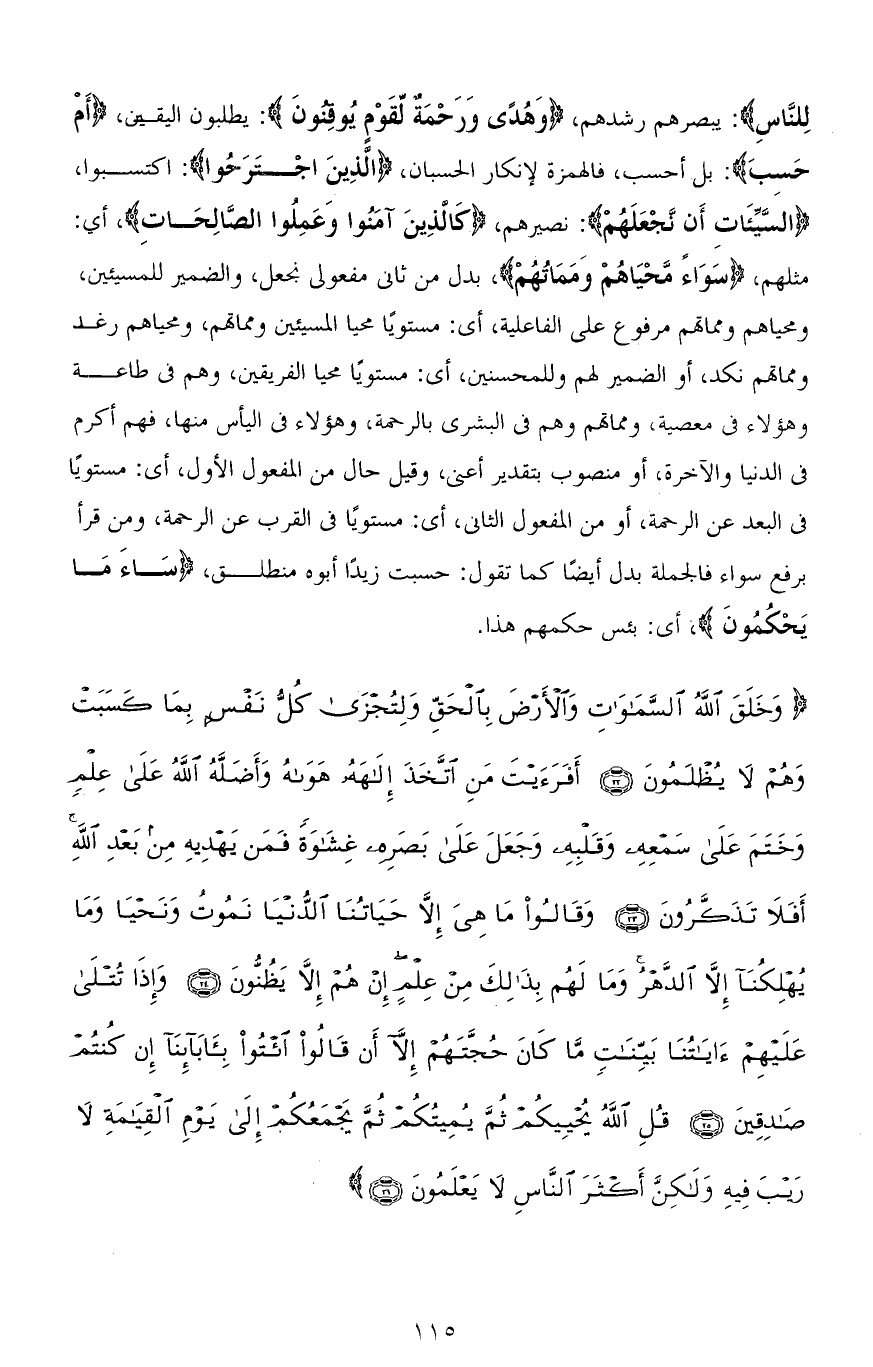 لِلنَّاسِ﴾: يبصرهم رشدهم، ﴿وَهُدًى وَرَحْمَةٌ لِّقَوْمٍ يُوقِنُونَ﴾: يطلبون اليقـين، ﴿أَمْ
حَسِبَ﴾: بل أحسب، فالهمزة لإنكار الحسبان، ﴿الَّذِينَ اجْتَرَحُوا﴾: اكتسـبوا،
﴿السَّيِّئَاتِ أَن نَّجْعَلَهُمْ﴾: نصيرهم، ﴿كَالَّذِينَ آمَنُوا وَعَمِلُوا الصَّالِحَاتِ﴾، أي:
مثلهم، ﴿سَوَاءً مَّحْيَاهُمْ وَمَمَاتُهُمْ﴾، بدل من ثانى مفعولى نجعل، والضمير للمسيئين،
ومحياهم ومماتهم مرفوع على الفاعلية، أى: مستويًا محيا المسيئين ومماتهم، ومحياهم رغـد
ومماتهم نكد، أو الضمير لهم وللمحسنين، أى: مستويًا محيا الفريقين، وهم فى طاعـة
وهؤلاء فى معصية، ومماتهم وهم فى البشرى بالرحمة، وهؤلاء فى اليأس منها، فهم أكرم
فى الدنيا والآخرة، أو منصوب بتقدير أعنى، وقيل حال من المفعول الأول، أى: مستويًا
فى البعد عن الرحمة، أو من المفعول الثانى، أى: مستويًا فى القرب عن الرحمة، ومن قرأ
برفع سواء فالجملة بدل أيضًا كما تقول: حسبت زيدًا أبوه منطلـق، ﴿سَاءَ مَا
يَحْكُمُونَ﴾، أى: بئس حكمهم هذا.
﴿وَخَلَقَ ٱللَّهُ ٱلسَّمَٰوَٰتِ وَٱلْأَرْضَ بِٱلْحَقِّ وَلِتُجْزَىٰ كُلُّ نَفْسٍۭ بِمَا كَسَبَتْ
وَهُمْ لَا يُظْلَمُونَ ٢٢ أَفَرَءَيْتَ مَنِ ٱتَّخَذَ إِلَٰهَهُۥ هَوَىٰهُ وَأَضَلَّهُ ٱللَّهُ عَلَىٰ عِلْمٍ
وَخَتَمَ عَلَىٰ سَمْعِهِۦ وَقَلْبِهِۦ وَجَعَلَ عَلَىٰ بَصَرِهِۦ غِشَٰوَةً فَمَن يَهْدِيهِ مِنۢ بَعْدِ ٱللَّهِ ۚ
أَفَلَا تَذَكَّرُونَ ٢٣ وَقَالُوا۟ مَا هِىَ إِلَّا حَيَاتُنَا ٱلدُّنْيَا نَمُوتُ وَنَحْيَا وَمَا
يُهْلِكُنَآ إِلَّا ٱلدَّهْرُ ۚ وَمَا لَهُم بِذَٰلِكَ مِنْ عِلْمٍ ۖ إِنْ هُمْ إِلَّا يَظُنُّونَ ٢٤ وَإِذَا تُتْلَىٰ
عَلَيْهِمْ ءَايَٰتُنَا بَيِّنَٰتٍ مَّا كَانَ حُجَّتَهُمْ إِلَّآ أَن قَالُوا۟ ٱئْتُوا۟ بِـَٔابَآئِنَآ إِن كُنتُمْ
صَٰدِقِينَ ٢٥ قُلِ ٱللَّهُ يُحْيِيكُمْ ثُمَّ يُمِيتُكُمْ ثُمَّ يَجْمَعُكُمْ إِلَىٰ يَوْمِ ٱلْقِيَٰمَةِ لَا
رَيْبَ فِيهِ وَلَٰكِنَّ أَكْثَرَ ٱلنَّاسِ لَا يَعْلَمُونَ ٢٦﴾
١١٥